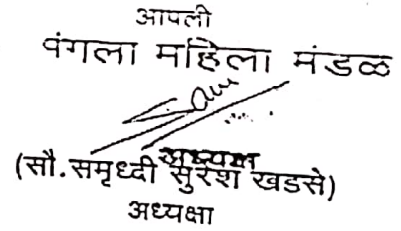 आपली
वंगला महिला मंडळ
अध्यक्ष
(सौ.समृध्दी सुरेश खडसे)
अध्यक्षा